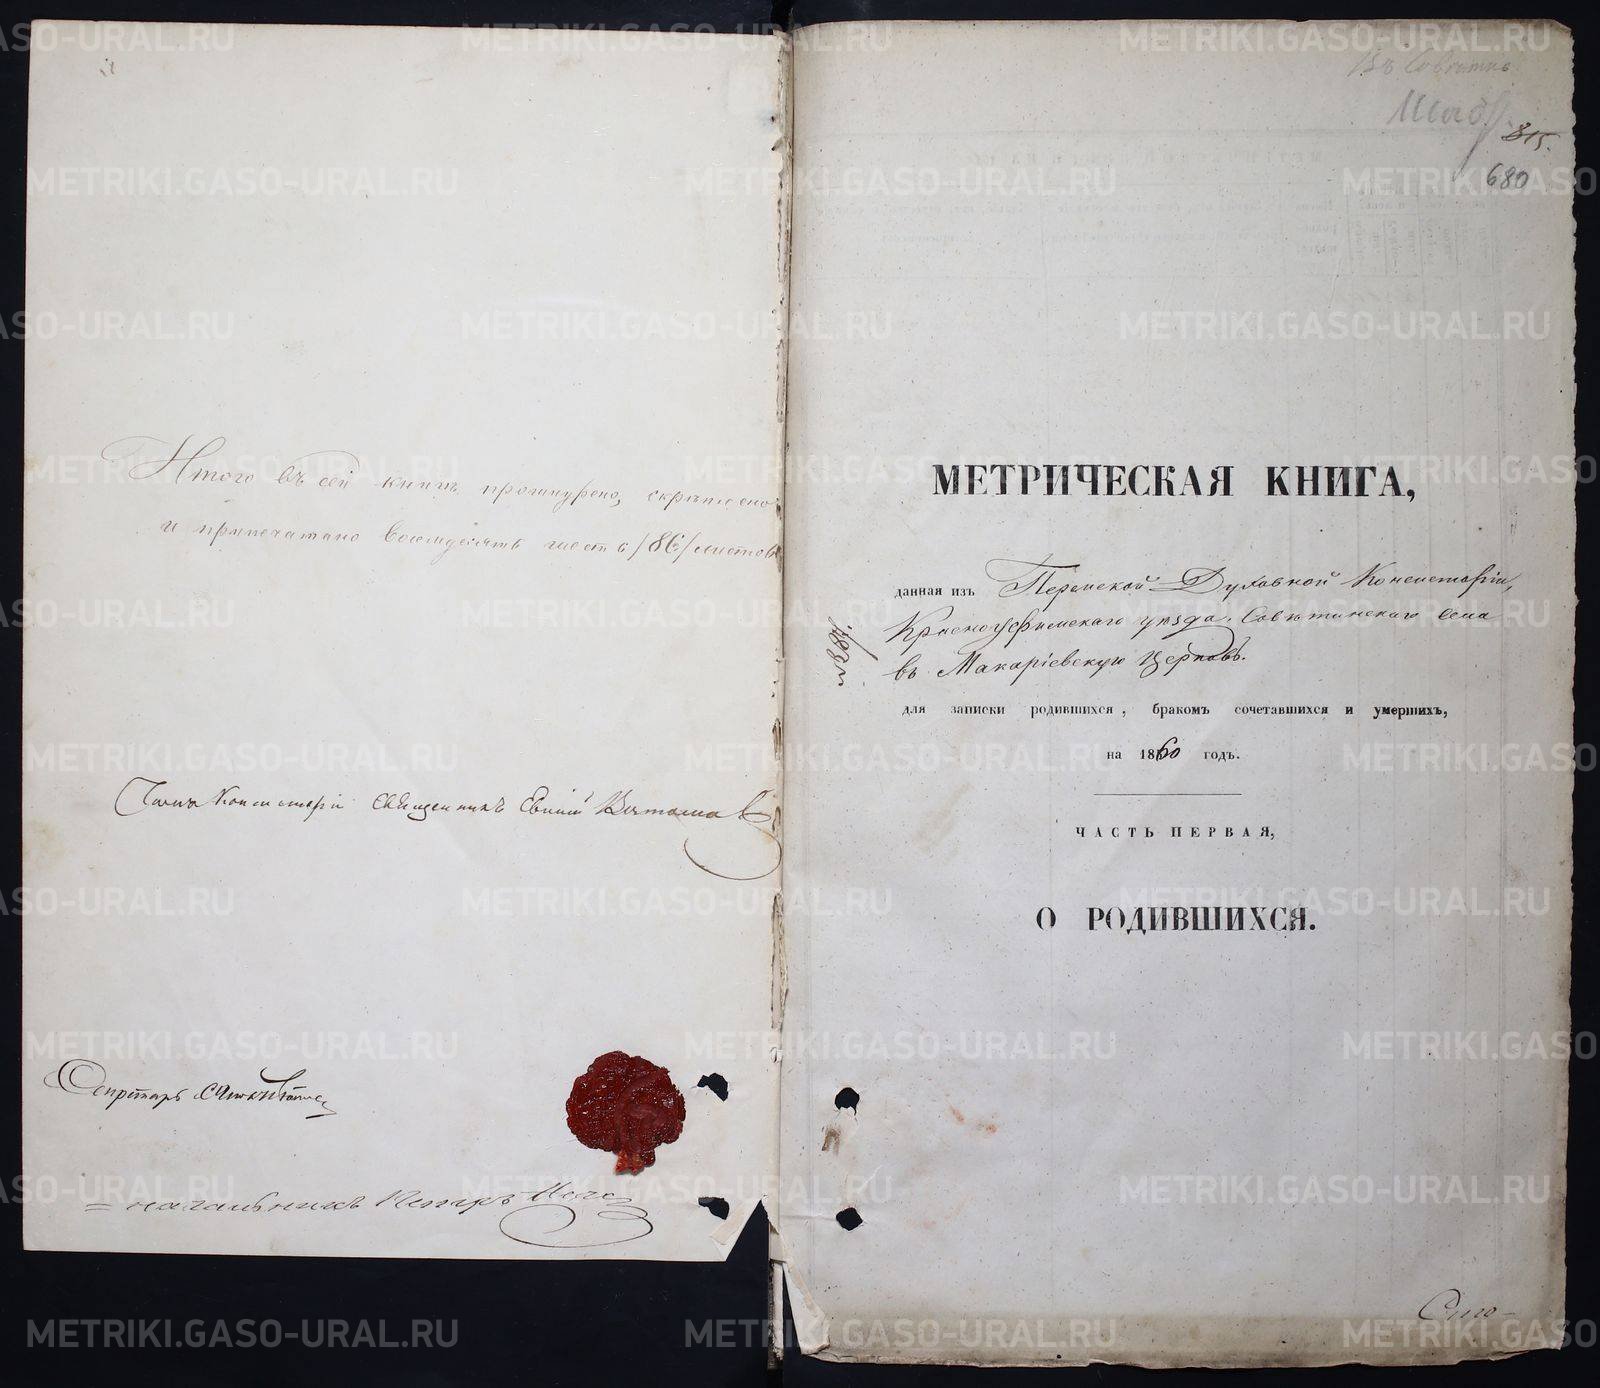 Итого въ сей книгѣ прошнурено, скрѣплено
и припечатано восемдесятъ шесть /86/ листовъ
Членъ Консисторіи Священникъ Евгеній
Секретарь
Начальникъ Петръ
815.
680
МЕТРИЧЕСКАЯ КНИГА,
данная изъ Пермской Духовной Консисторіи,
Красноуфимскаго уѣзда, Совѣтинскаго села
въ Макаріевскую Церковь.
для записки родившихся, бракомъ сочетавшихся и умершихъ,
на 1860 годъ.
ЧАСТЬ ПЕРВАЯ,
О РОДИВШИХСЯ.
METRIKI.GASO-URAL.RU